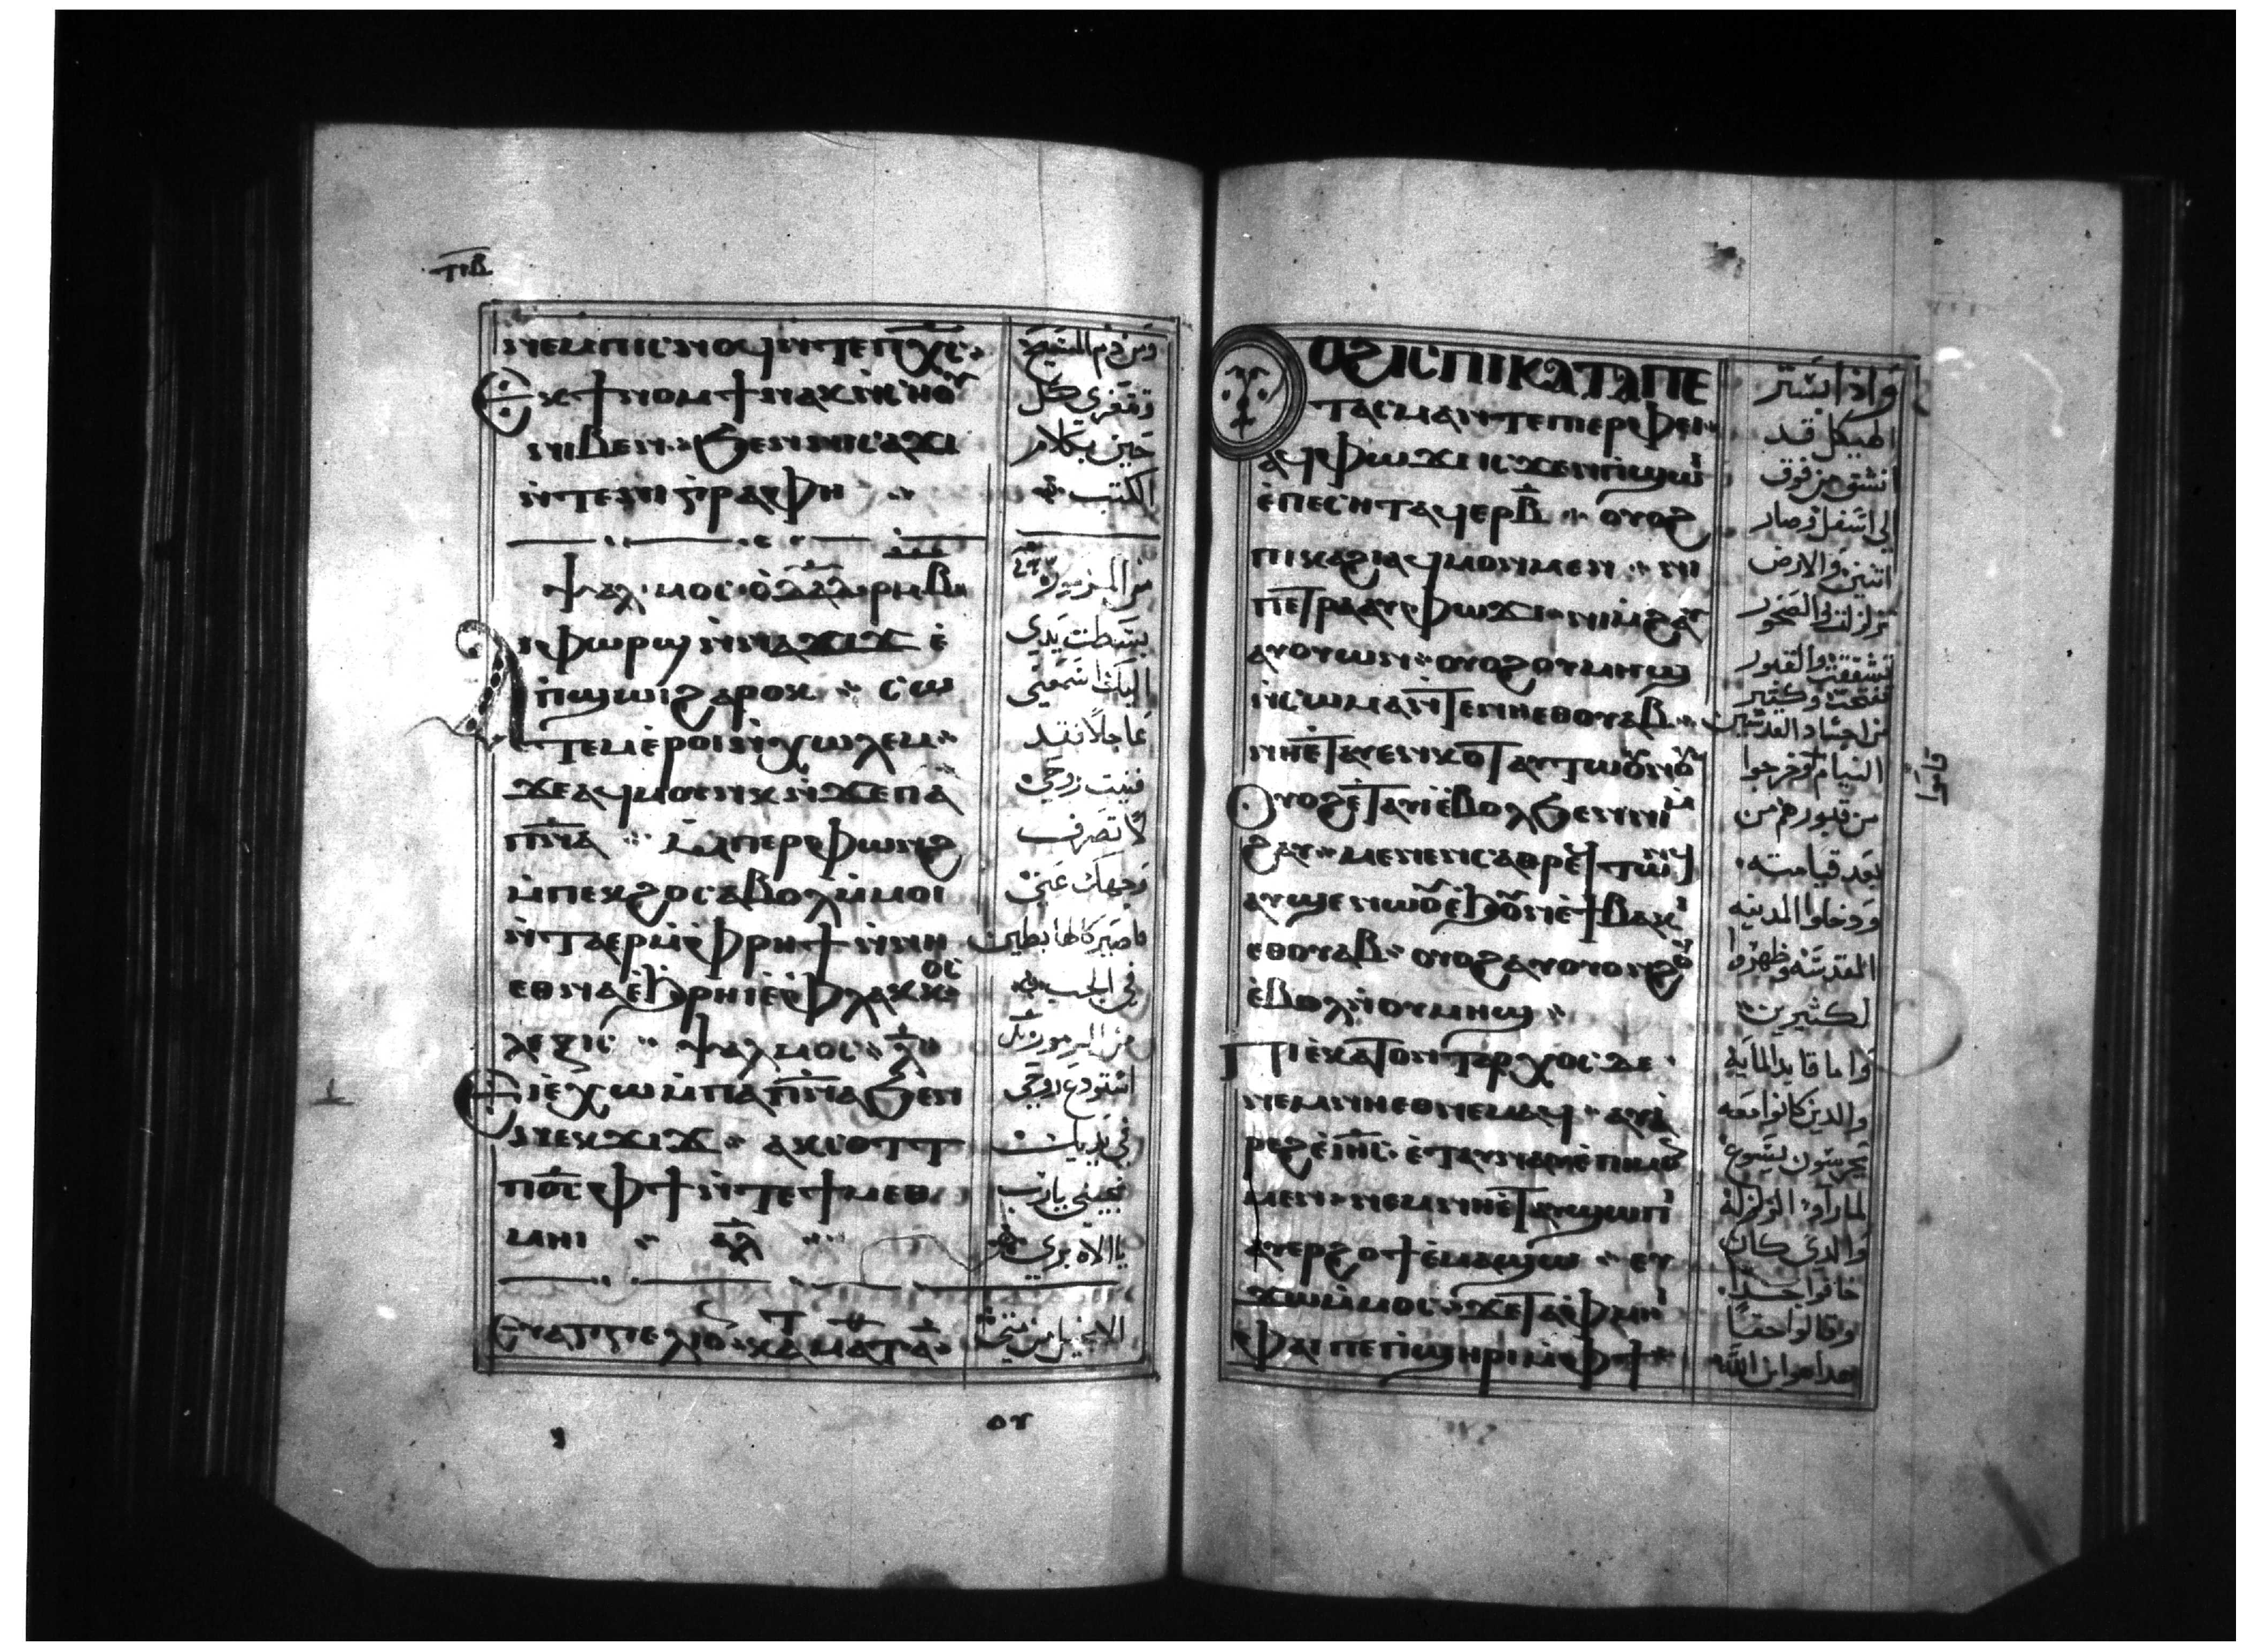 ⲧⲓⲃ
ⲛⲉⲙⲡⲓⲥⲛⲟϥⲛ̀ⲧⲉⲡⲭ̅ⲥ̅
ⲉⲕϯⲛⲟⲙϯⲛⲁⲕⲛ̀ⲥⲏⲟⲩ
ⲛⲓⲃⲉⲛ ϧⲉⲛⲛⲓⲥⲁϫⲓ
ⲛ̀ⲧⲉⲛⲓⲅⲣⲁⲫⲏ
ⲯⲁⲗⲙⲟⲥ ⲟ̀ ⲇⲁⲇ ⲣⲙⲃ
ⲁⲓⲫⲱⲣϣ ⲛ̀ⲛⲁϫⲓϫ ⲉ̀
ⲡϣⲱⲓϩⲁⲣⲟⲕ ⲥⲱ
ⲧⲉⲙⲉ̀ⲣⲟⲓⲛ̀ⲭⲱⲗⲉⲙ
ϫⲉⲁϥⲙⲟⲩⲛⲕⲛ̀ϫⲉⲡⲁ
ⲡⲛ̅ⲁ̅ ⲙ̀ⲡⲉⲣⲫⲱⲛϩ
ⲙ̀ⲡⲉⲕϩⲟⲥⲁⲃⲟⲗⲙ̀ⲙⲟⲓ
ⲛ̀ⲧⲁⲉⲣⲙ̀ⲫⲣⲏϯ ⲛ̀ⲛⲏ
ⲉⲑⲛⲁⲉ̀ϧⲣⲏⲓⲉ̀ⲫⲗⲁⲕⲕⲟⲥ
ⲗⲉⲝⲓⲥ ⲯⲁⲗⲙⲟⲥ ⲗ̅
ϯⲓⲉ̀ⲭⲱⲙ̀ⲡⲁⲡⲛ̅ⲁ̅ϧⲉⲛ
ⲛⲉⲕϫⲓϫ ⲁⲕⲥⲟⲧⲧ
ⲡⲟ̅ⲥ̅ ⲫϯ ⲛ̀ⲧⲉϯⲙⲉⲑ
ⲙⲏⲓ ⲁⲗ
ⲉⲩⲁⲅⲅⲉⲗⲓⲟ ⲕⲁⲧⲁ ⲙⲁⲧ
ومن دم المسيح
وتتعزى كل
حين بكلام
الكتب
من المزمور
بسطت يدى
اليك اسمعنى
عاجلا فقد
فنيت روحى
لا تصرف
وجهك عنى
فاصير كالهابطين
فى الجب
من المزمور
استودع روحى
فى يديك
نجينى يارب
يا الاه برى
الانجيل من متى
ⲟⲩⲟϩⲓⲥⲡⲓⲕⲁⲧⲁⲡⲉ
ⲧⲁⲥⲙⲁⲛ̀ⲧⲉⲡⲉⲣⲫⲉⲓ
ⲁϥⲫⲱϫⲓ ⲓⲥϫⲉⲛⲡ̀ϣⲱⲓ
ⲉ̀ⲡⲉⲥⲏⲧⲁϥⲉⲣⲃ̅ ⲟⲩⲟϩ
ⲡⲓⲕⲁϩⲓⲁϥⲙⲟⲛⲙⲉⲛ ⲛⲓ
ⲡⲉⲧⲣⲁⲁⲩⲫⲱϫⲓ ⲛⲓⲙ̀ϩⲁⲩ
ⲁⲩⲟⲩⲱⲛ ⲟⲩⲟϩⲟⲩⲙⲏϣ
ⲛ̀ⲥⲱⲙⲁⲛ̀ⲧⲉⲛⲏⲉⲑⲟⲩⲁⲃ
ⲛⲏⲉ̀ⲧⲁⲩⲉⲛⲕⲟⲧⲁⲩⲧⲱⲟⲩⲛⲟⲩ
ⲟⲩⲟϩⲉ̀ⲧⲁⲩⲓⲉ̀ⲃⲟⲗϧⲉⲛⲛⲓⲙ̀
ϩⲁⲩ ⲙⲉⲛⲉⲛⲥⲁⲑⲣⲉϥⲧⲱⲛϥ
ⲁⲩϣⲉⲛⲱⲟⲩⲉ̀ϧⲟⲩⲛⲉ̀ϯⲃⲁⲕⲓ
ⲉⲑⲟⲩⲁⲃ ⲟⲩⲟϩⲁⲩⲟⲩⲟⲛϩⲟⲩ
ⲉ̀ⲃⲟⲗⲛ̀ⲟⲩⲙⲏϣ
ⲡⲓⲉⲕⲁⲧⲟⲛⲧⲁⲣⲭⲟⲥ ⲇⲉ
ⲛⲉⲙⲛⲏⲉⲑⲛⲉⲙⲁϥ ⲁⲩⲁ̀
ⲣⲉϩⲉ̀ⲓⲏ̅ⲥ̅ ⲉ̀ⲧⲁⲩⲛⲁⲩⲉ̀ⲡⲓⲙⲟⲛ
ⲙⲉⲛ ⲛⲉⲙⲛⲏⲉ̀ⲧⲁⲩϣⲱⲡⲓ
ⲁⲩⲉⲣϩⲟϯⲉ̀ⲙⲁϣⲱ ⲉⲩ
ϫⲱⲙ̀ⲙⲟⲥ ϫⲉⲧⲁⲫⲙⲏⲓ
ⲫⲁⲓⲡⲉⲡ̀ϣⲏⲣⲓⲙ̀ⲫϯ
واذا بستر
الهيكل قد
انشق من فوق
الى اسفل وصار
اثنين والارض
تزلزلت والصخور
تشققت والقبور
تفتحت وكثير
من اجساد القديسين
النيام وخرجوا
قاموا
من قبورهم من
بعد قيامته
ودخلوا المدينه
المقدسه وظهروا
لكثيرين
واما قايد المايه
والدين كانوا معه
يحرسون ليسوع
لما راوا الزلزله
والدى كان
خافوا جدا
وقالوا حقا
هدا هو ابن الله